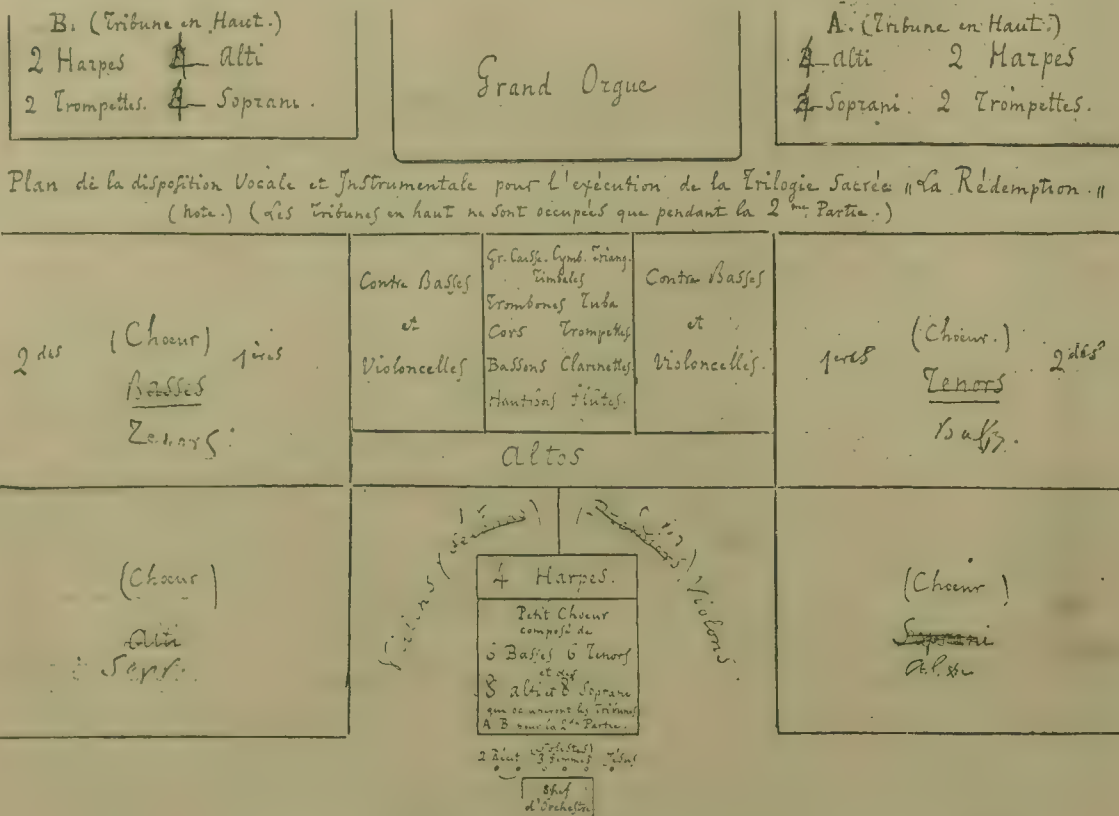 B. (Tribune en Haut.)
2 Harpes 4 Alti
2 Trompettes. 4 Soprani.
Grand Orgue
A. (Tribune en Haut.)
4 alti 2 Harpes
4 Soprani. 2 Trompettes.
Plan de la disposition Vocale et Instrumentale pour l'exécution de la Trilogie Sacrée "La Rédemption."
(Note.) (Les Tribunes en haut ne sont occupées que pendant la 2me Partie.)
2des (Choeur) 1ères
Basses
Tenors
Contre Basses
et
Violoncelles
Gr. Caisse. Cymb. Triang.
Timbales
Trombones Tuba
Cors Trompettes
Bassons Clarinettes
Hautbois Flûtes.
Contre Basses
et
Violoncelles.
1eres (Choeur.) 2des
Tenors
Bass.
Altos
(Choeur)
Alti
Sopr.
Violins (Seconds)
(Premiers) Violons.
4 Harpes.
Petit Choeur
composé de
6 Basses 6 Tenors
et des
8 Alti et 8 Soprani
que occuperont les Tribunes
A B pour la 2de Partie.
(Solistes)
2 Récit 3 femmes Jésus
Chef
d'Orchestre
(Choeur)
Soprani